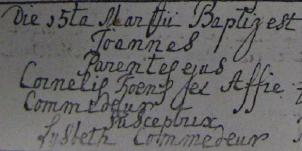 Die 15ta Martii Baptizest
Joannes
Parentes ejus
Cornelis Hoens et Affie
Commedeur
susceptrix
Lysbeth Commedeur